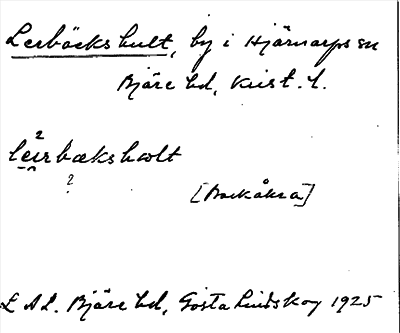 Lerbäckshult, by i Hjärnarps sn
Bjäre hd, Krist. l.
2
leirbæksholt
?
[Backåkra]
L A L. Bjäre hd, Gösta Lindskog 1925